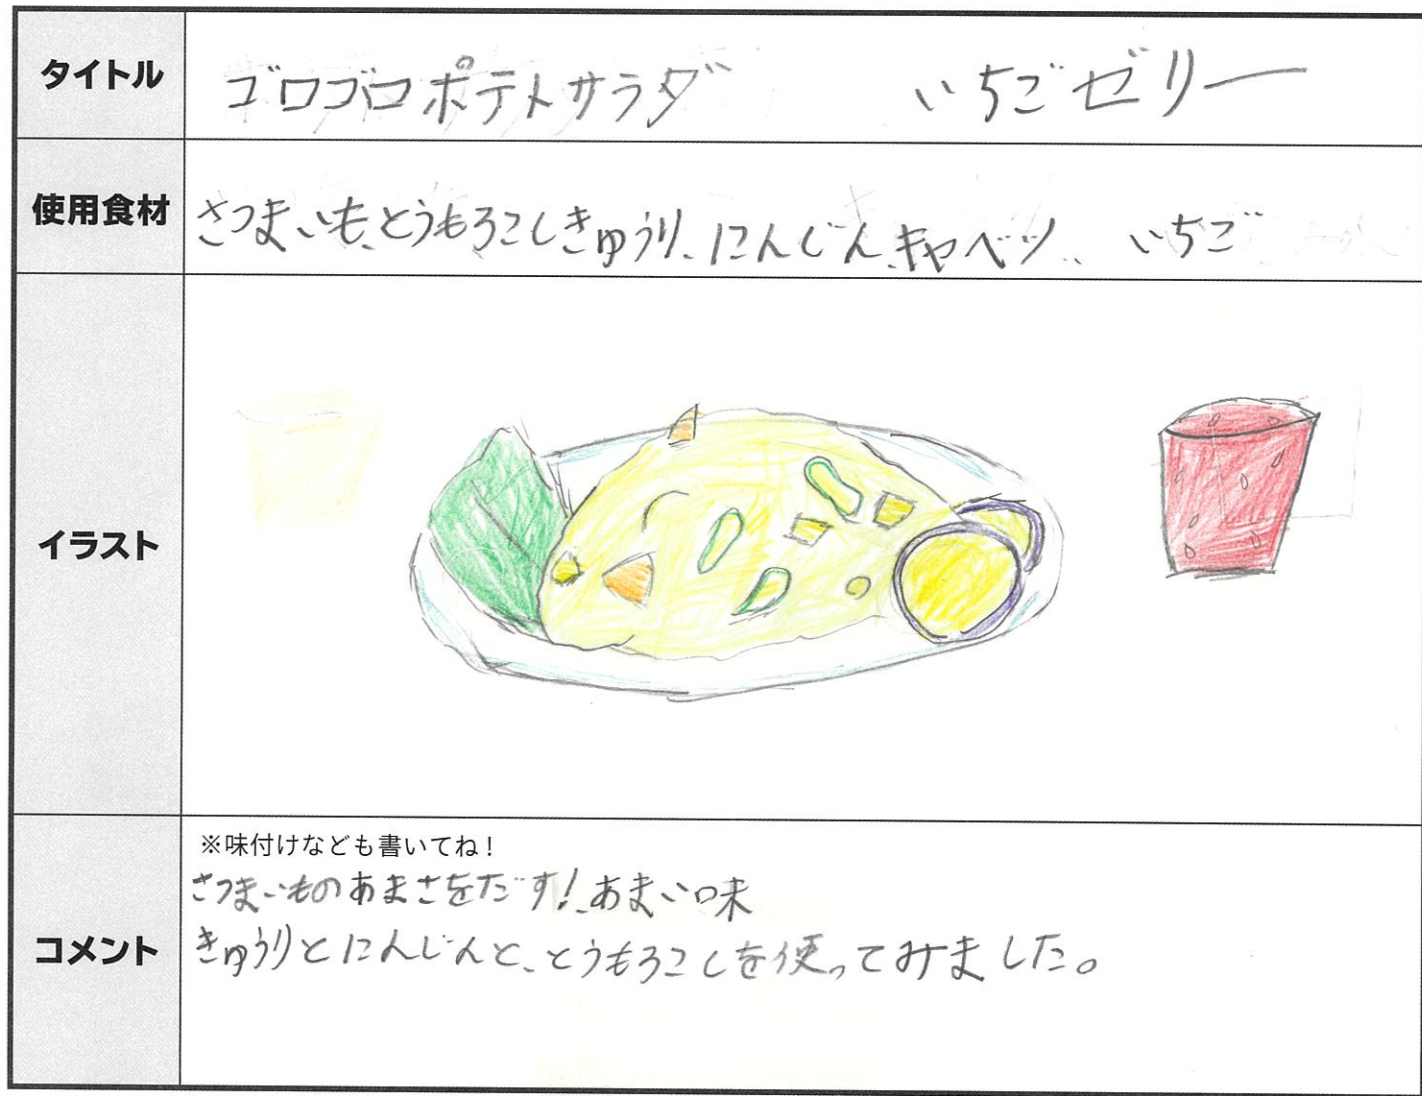 タイトル
ゴロゴロポテトサラダ いちごゼリー
使用食材
さつまいも、とうもろこしきゅうり、にんじん、キャベツ、 いちご
イラスト
コメント
※味付けなども書いてね！
さつまいものあまさをだす！、あまい味
きゅうりとにんじんと、とうもろこしを使ってみました。